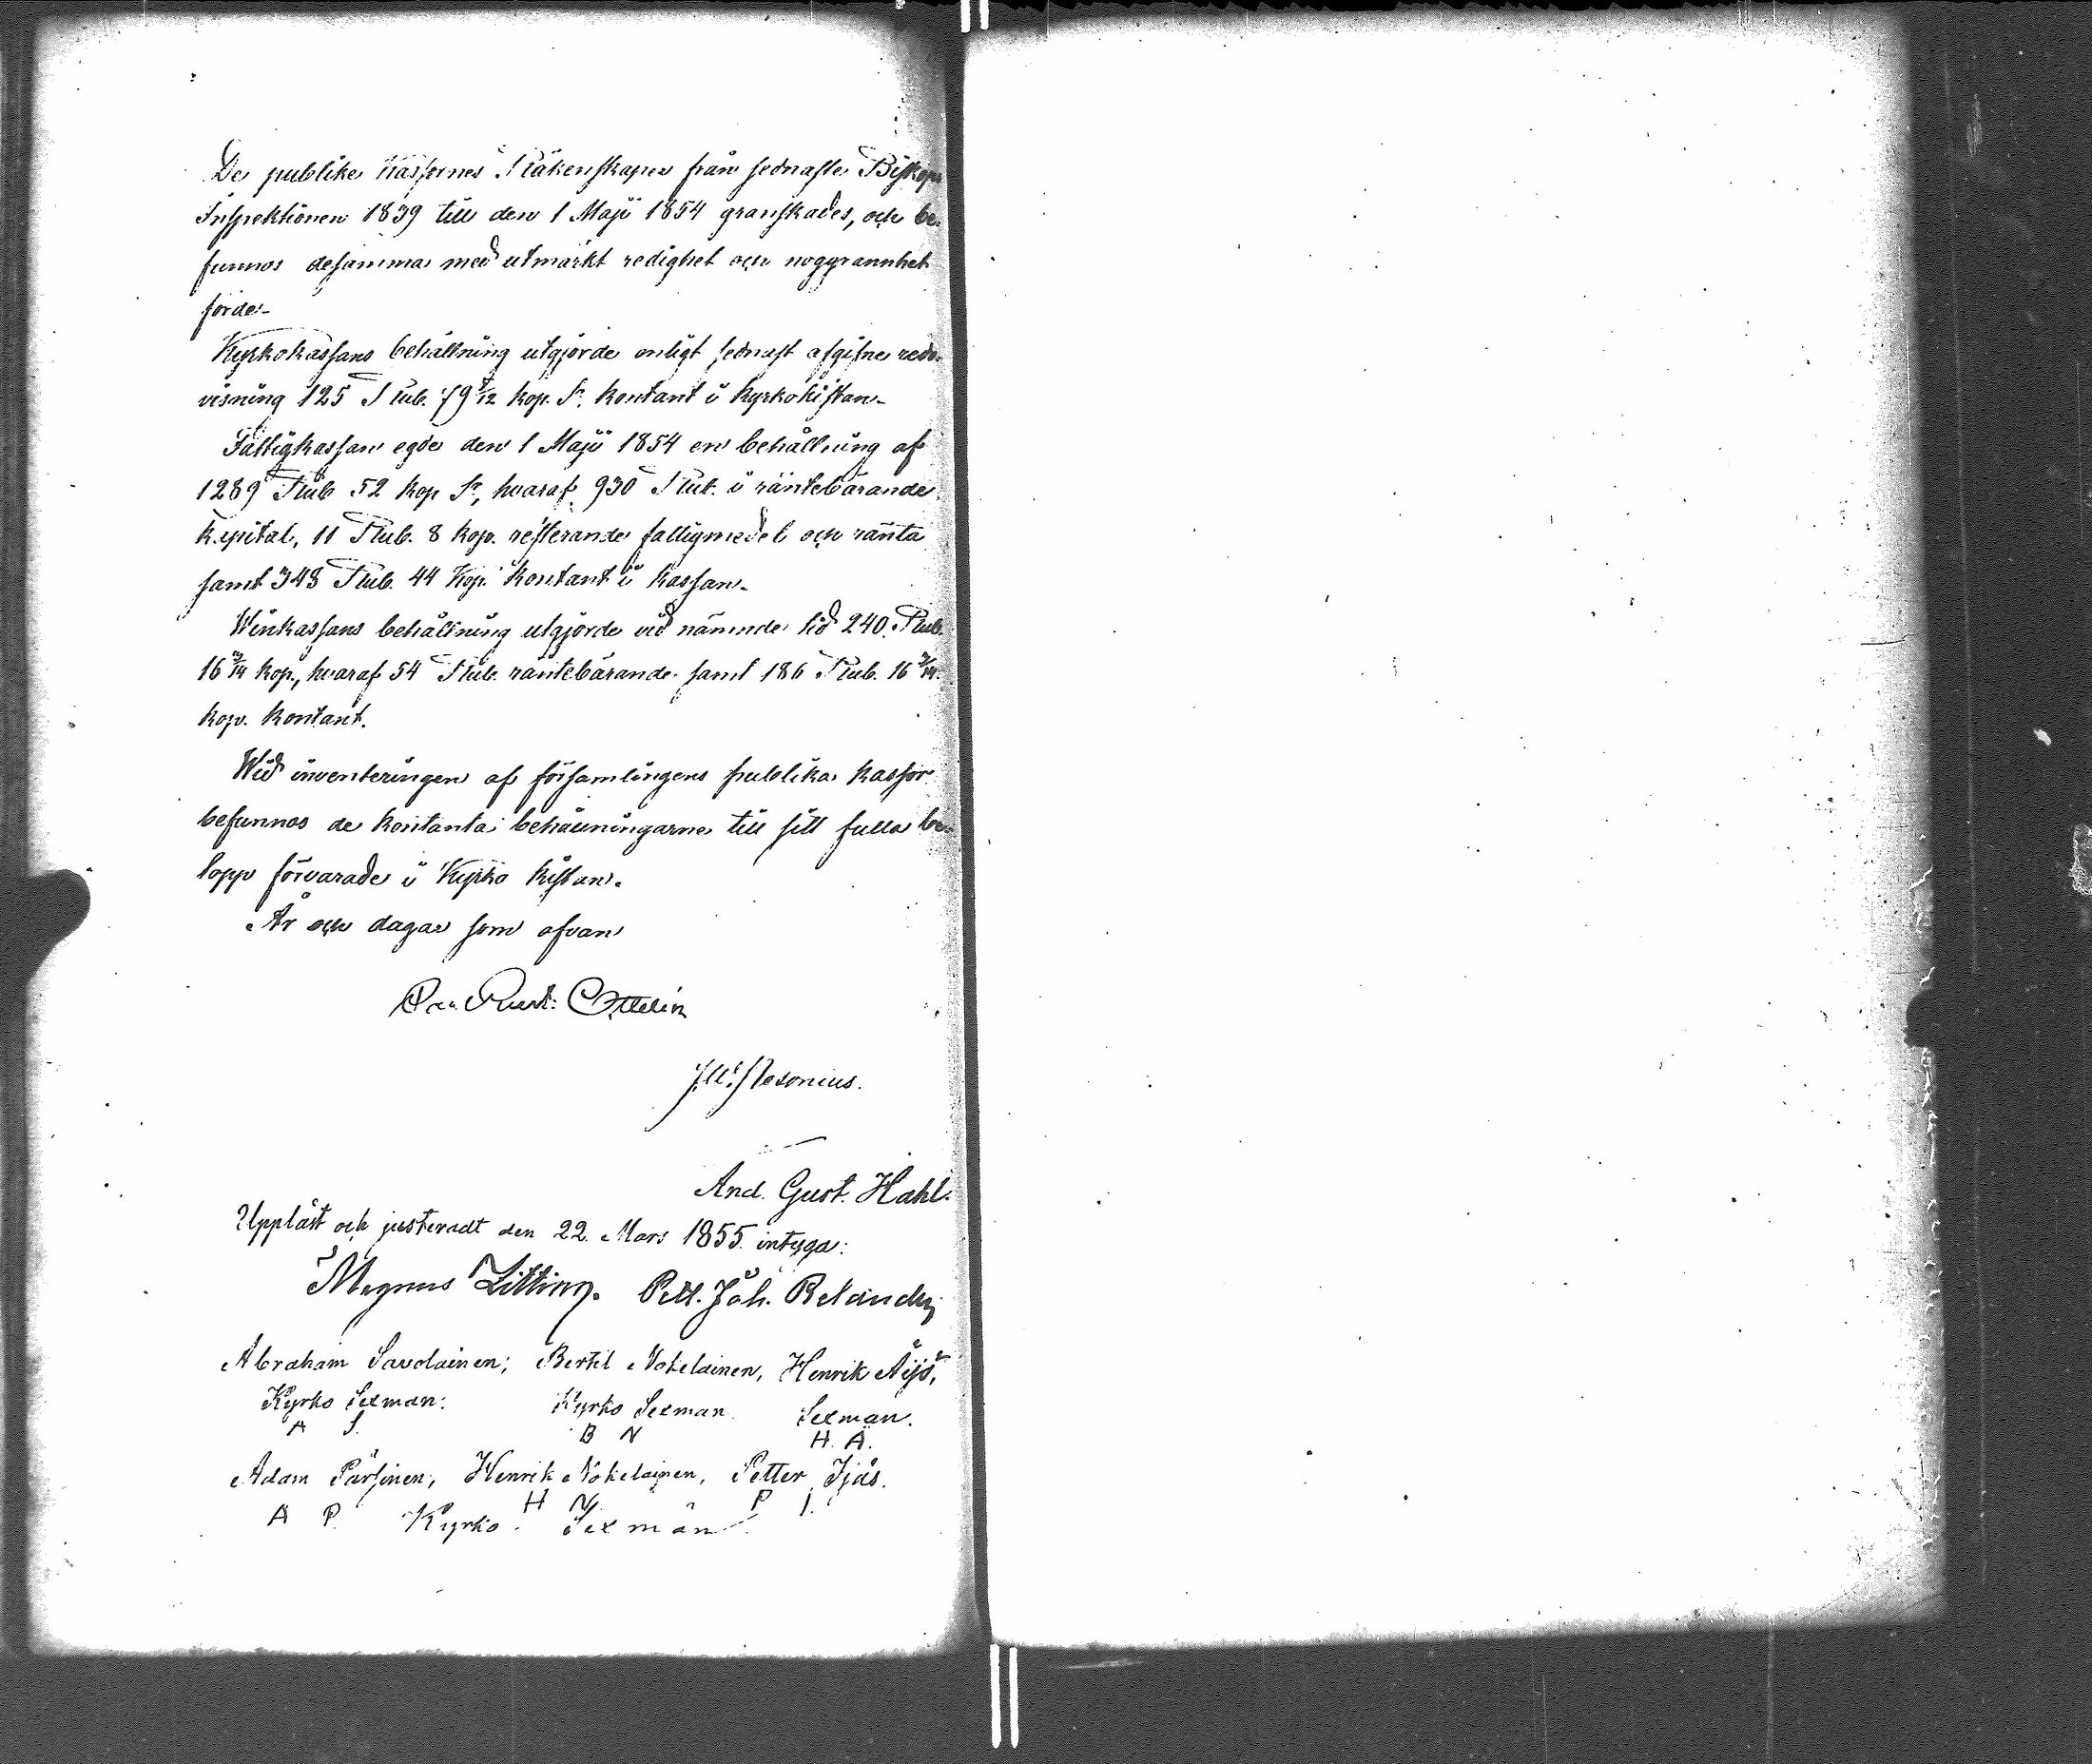 De publike Kassornes Räkenskaper från sednaste Biskops
Inspektionen 1839 till den 1 Maji 1854 granskades, och be-
funnos desamma med utmärkt redighet och noggrannhet
förde.
Kyrkokassans behållning utgjorde enligt sednast afgifne redo-
visning 125 Rub. 79 7/12 kop. Sr. kontant i kyrkokistan.
Fattigkassan egde den 1 Maji 1854 en behållning af
1289 Rub 52 kop Sr, hvaraf 930 Rub. i räntebärande
kapital, 11 Rub. 8 kop. resterande fattigmedel och ränta
samt 348 Rub. 44 Kop. kontant i kassan.
Winkassans behållning utgjorde vid nämnde tid 240 Rub.
16 kop., hvaraf 54 Rub. räntebärande samt 186 Rub. 16
kop. kontant.
Wid inventeringen af församlingens publika kassor
befunnos de kontanta behållningarne till sitt fulla be-
lopp förvarade i Kyrko kistan.
År och dagar som ofvan
Ottelin
And. Gust. Hahl.
Uppläst och justeradt den 22. Mars 1855 intyga:
Magnus Litting. Pett. Joh. Relander
Abraham Savolainen; Bertil Nokelainen, Henrik Äijö,
Kyrko Sexman. Kyrko Sexman. Sexman.
A S. B N H. Ä.
Adam Pärsinen, Henrik Nokelainen, Petter Ijäs.
A P. H N. P I.
Kyrko Sexmän.